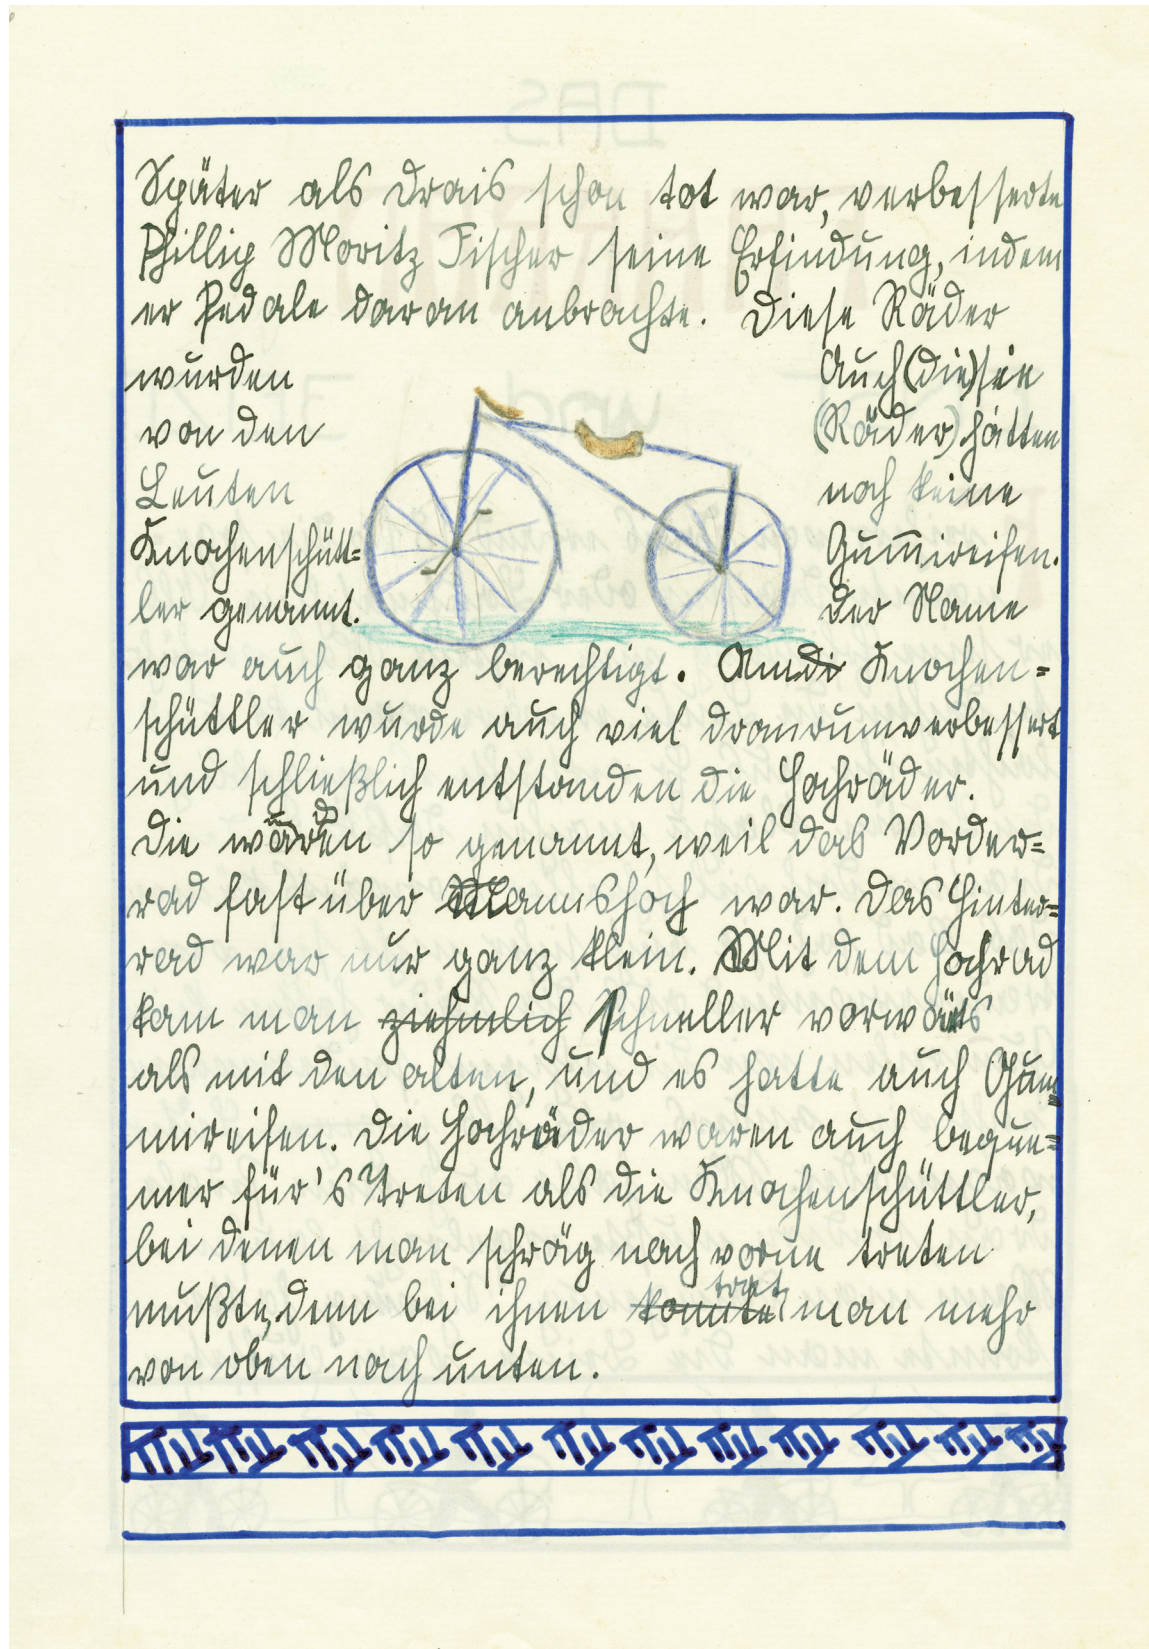 Später als Drais schon tot war, verbesserte
Phillip Moritz Fischer seine Erfindung, indem
er Pedale daran anbrachte. Diese Räder
wurden
von den
Leuten
Knochenschütt=
ler genannt.
Auch (die)sie
(Räder) hatten
noch keine
Gum̄ireifen.
Der Name
war auch ganz berechtigt. Am Knochen=
schüttler wurde auch viel dranrumverbessert
und schließlich entstanden die Hochräder.
Die wurden so genannt, weil das Vorder=
rad fast über Mannshoch war. Das Hinter=
rad war nur ganz klein. Mit dem Hochrad
kam man ziehmlich schneller vorwärts
als mit den alten, und es hatte auch Gum=
mireifen. Die Hochräder waren auch beque=
mer für's Treten als die Knochenschüttler,
bei denen man schräg nach vorne treten
mußte, denn bei ihnen konnte trat man mehr
von oben nach unten.